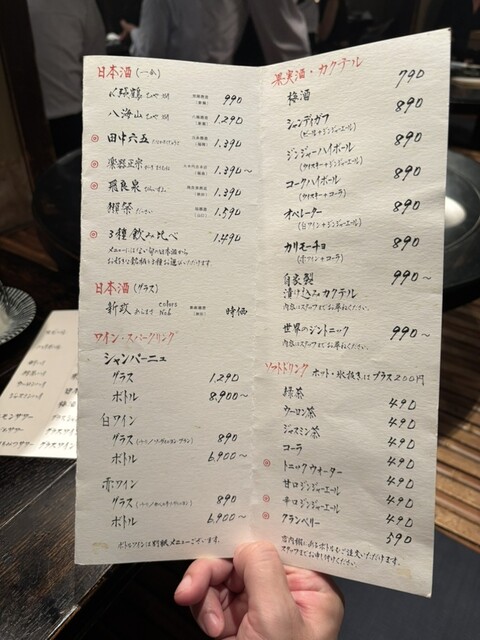 日本酒 (一合)
〆張鶴 990
八海山 1,290
田中六五 1,390
楽器正宗 1,390〜
飛良泉 1,390
獺祭 だっさい 1,590
3種飲み比べ 1,490
メニューにない旬の日本酒から
お好きな銘柄を3種お選びいただけます。
日本酒 (グラス)
新政 あらまさ colors No.6 時価
ワイン・スパークリング
シャンパーニュ
グラス 1,290
ボトル 8,900〜
白ワイン
グラス 890
ボトル 6,900〜
赤ワイン
グラス 890
ボトル 6,900〜
ボトルワインは別紙メニューございます。
果実酒・カクテル
梅酒 790
シャンディガフ 890
(ビール+ジンジャーエール)
ジンジャーハイボール 890
(ウイスキー+ジンジャーエール)
コークハイボール 890
(ウイスキー+コーラ)
オペレーター 890
(白ワイン+ジンジャーエール)
カリモーチョ 890
(赤ワイン+コーラ)
自家製 990〜
漬け込みカクテル
内容はスタッフまでお尋ねください。
世界のジントニック 990〜
内容はスタッフまでお尋ねください。
ソフトドリンク ホット・氷抜きはプラス200円
緑茶 490
ウーロン茶 490
ジャスミン茶 490
コーラ 490
トニックウォーター 490
甘口ジンジャーエール 490
辛口ジンジャーエール 490
クランベリー 590
店内棚にあるボトルもご注文いただけます。
スタッフまでお申し付けください。